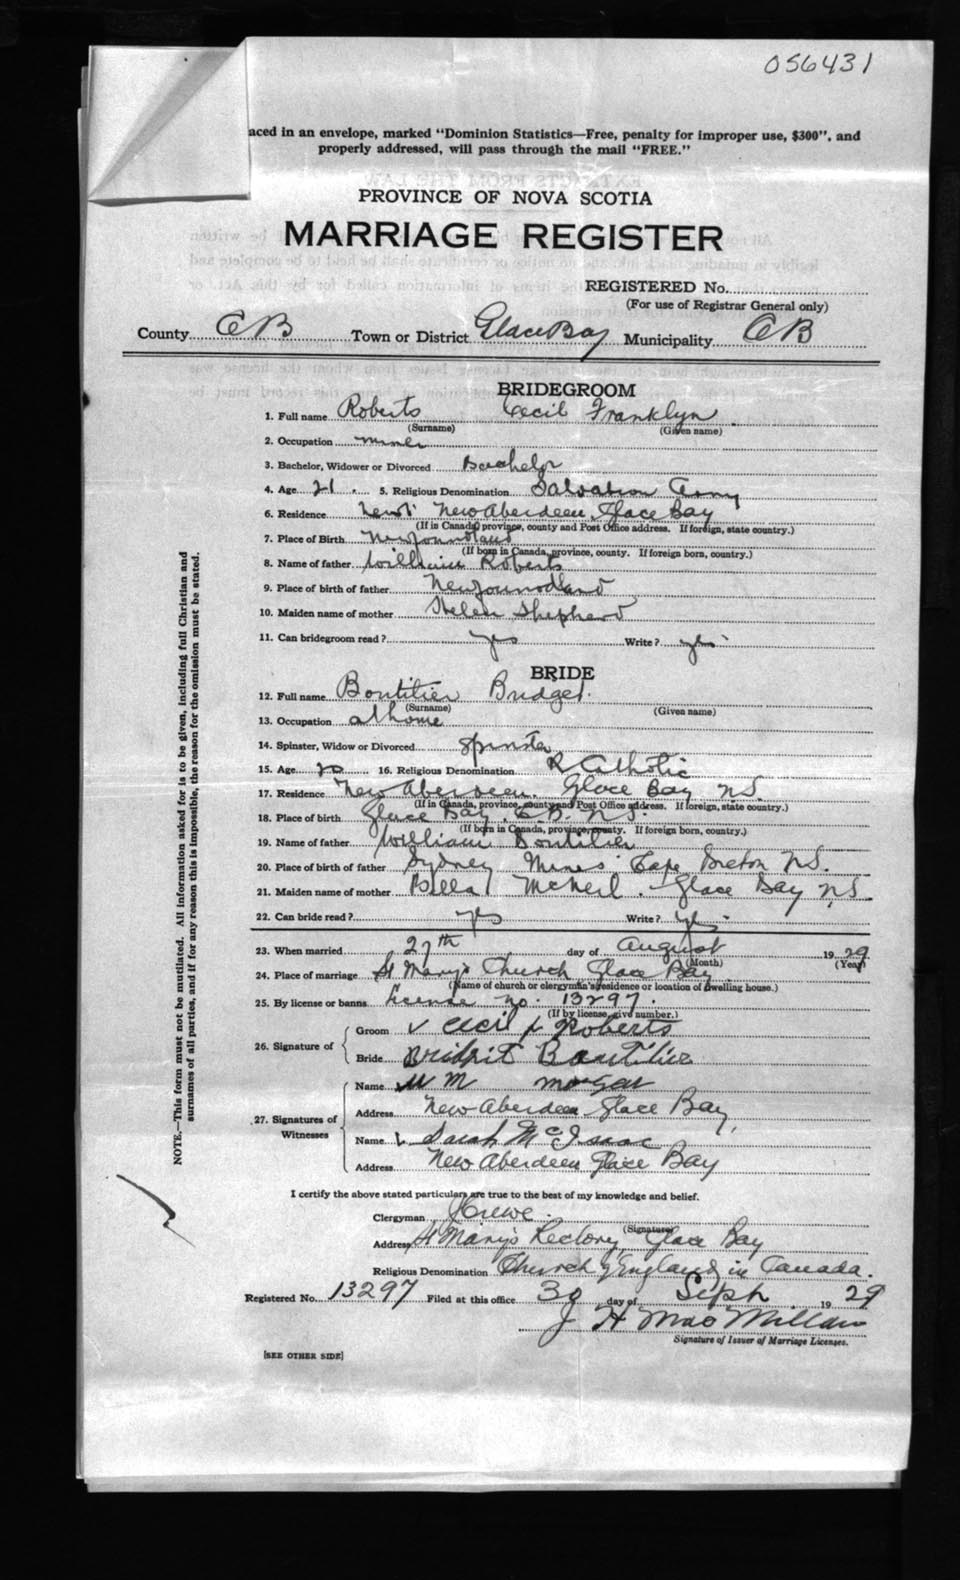 056431
aced in an envelope, marked "Dominion Statistics—Free, penalty for improper use, $300", and
properly addressed, will pass through the mail "FREE."
PROVINCE OF NOVA SCOTIA
MARRIAGE REGISTER
REGISTERED No.
(For use of Registrar General only)
County CB Town or District Glace Bay Municipality CB
BRIDEGROOM
1. Full name Roberts Cecil Franklyn
(Surname) (Given name)
2. Occupation miner
3. Bachelor, Widower or Divorced Bachelor
4. Age 21 5. Religious Denomination Salvation Army
6. Residence New Aberdeen, Glace Bay
(If in Canada, province, county and Post Office address. If foreign, state country.)
7. Place of Birth Newfoundland
(If born in Canada, province, county. If foreign born, country.)
8. Name of father William Roberts
9. Place of birth of father Newfoundland
10. Maiden name of mother Helen Shepherd
11. Can bridegroom read? yes Write? yes
BRIDE
12. Full name Boutilier Bridget
(Surname) (Given name)
13. Occupation at home
14. Spinster, Widow or Divorced spinster
15. Age 20 16. Religious Denomination R Catholic
17. Residence New Aberdeen, Glace Bay N.S.
(If in Canada, province, county and Post Office address. If foreign, state country.)
18. Place of birth Glace Bay, C.B. N.S.
(If born in Canada, province, county. If foreign born, country.)
19. Name of father William Boutilier
20. Place of birth of father Sydney Mines Cape Breton N.S.
21. Maiden name of mother Bella McNeil. Glace Bay N.S.
22. Can bride read? yes Write? yes
23. When married 27th day of August 1929
(Month) (Year)
24. Place of marriage St Mary's Church Glace Bay
(Name of church or clergyman's residence or location of dwelling house.)
25. By license or banns License no. 13297.
(If by license, give number.)
26. Signature of
Groom Cecil F Roberts
Bride Boutilier
27. Signatures of Witnesses
Name Wm
Address New Aberdeen Glace Bay,
Name Sarah McIsaac
Address New Aberdeen Glace Bay
I certify the above stated particulars are true to the best of my knowledge and belief.
Clergyman
(Signature)
Address St Mary's Rectory, Glace Bay
Religious Denomination Church of England in Canada.
Registered No. 13297 Filed at this office 30 day of Sept 1929
J H MacMillan
Signature of Issuer of Marriage Licenses.
[SEE OTHER SIDE]
NOTE.—This form must not be mutilated. All information asked for is to be given, including full Christian and
surnames of all parties, and if for any reason this is impossible, the reason for the omission must be stated.